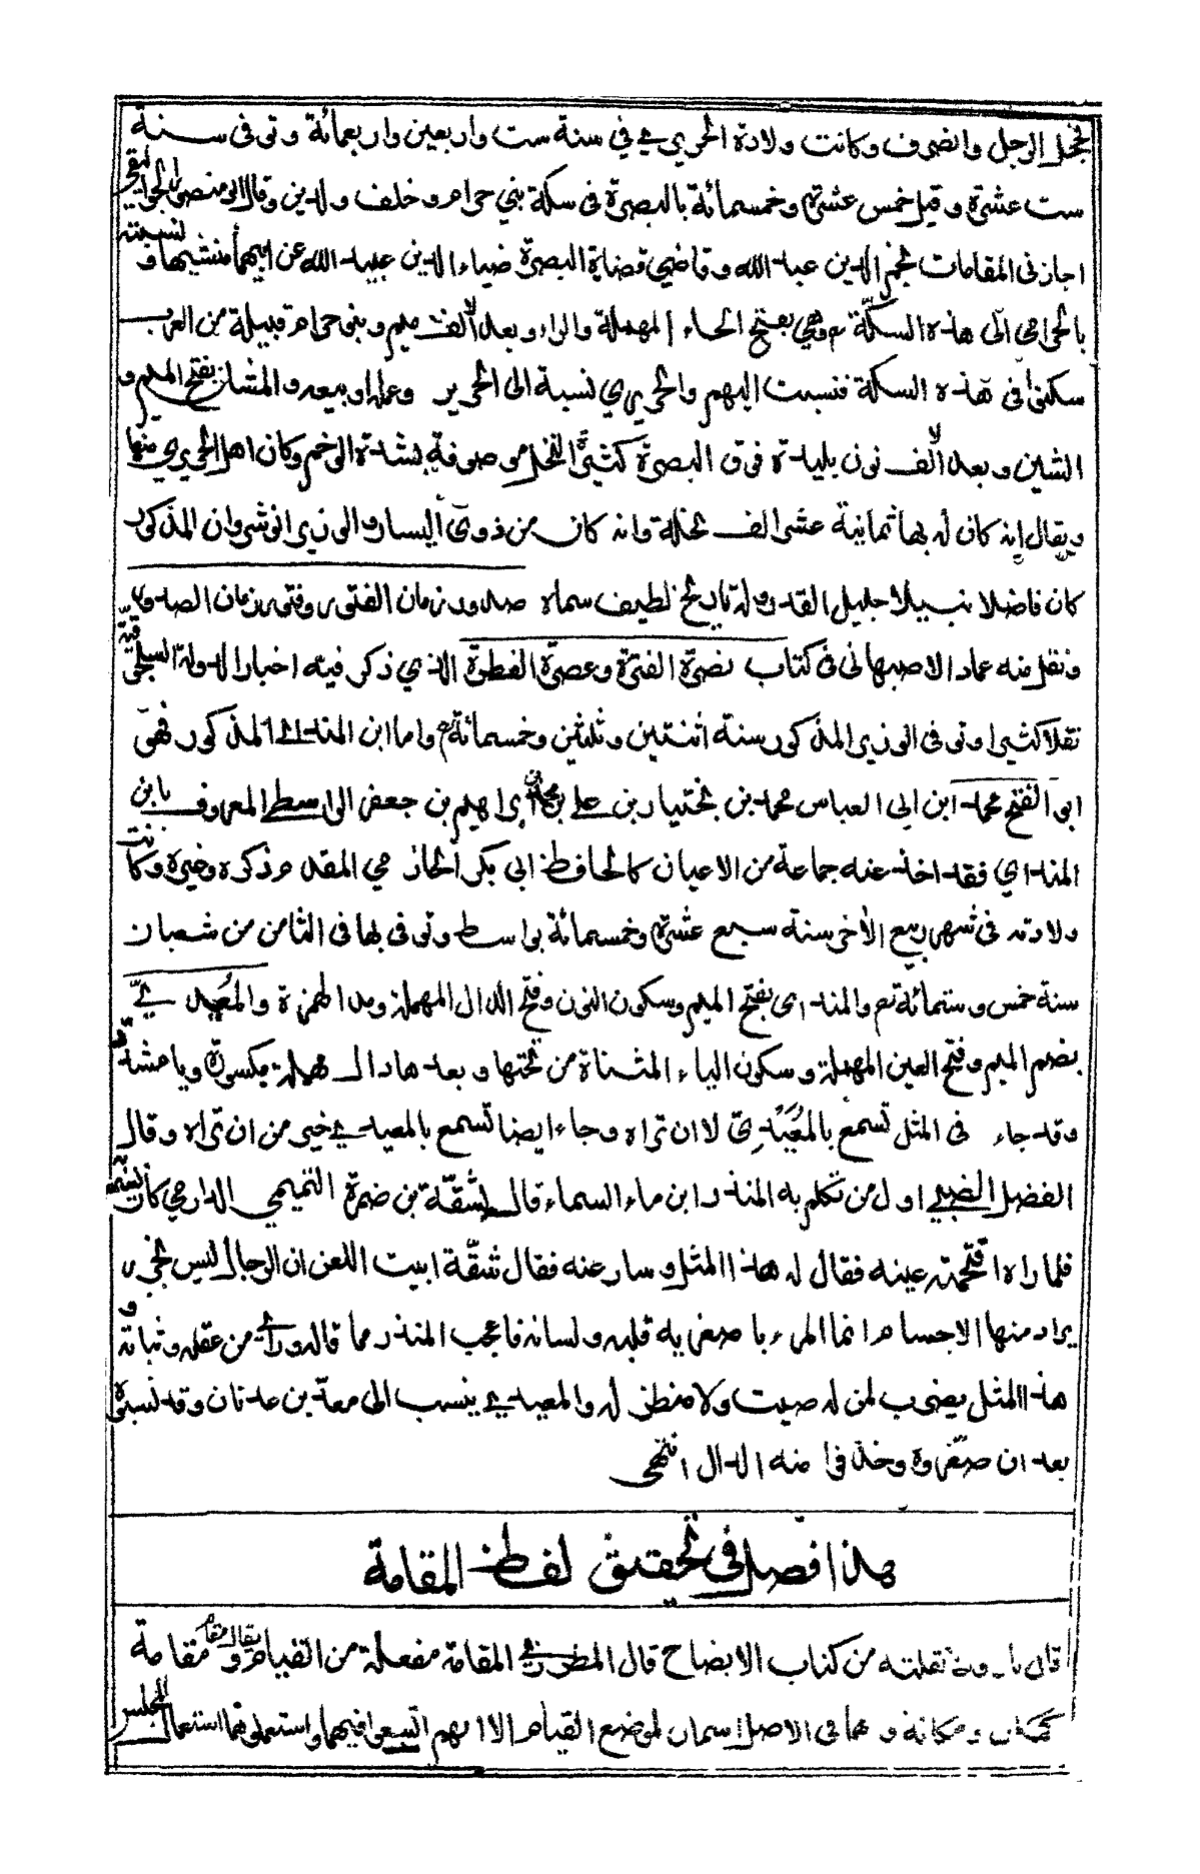 فخجل الرجل وانصرف وكانت ولادة الحريري في سنة ست واربعين واربعمائة وتوفى سنة
ست عشرة وقيل خمس عشرة وخمسمائة بالبصرة فى سكة بني حرام وخلف ولدين وقال ابو منصور الجواليقي
اجازنى المقامات نجم الدين عبد الله وقاضي قضاة البصرة ضياء الدين عبيد الله عن ابيهما منشيها ونسبته
بالحرامى الى هذه السكة وهي بفتح الحاء المهملة والراء وبعد الالف ميم وبنى حرام قبيلة من العرب
سكنوا فى هذه السكة فنسبت اليهم والحريري نسبة الى الحرير وعمله او بيعه والمشان بفتح الميم و
الشين وبعد الالف نون بليدة فوق البصرة كثيرة النخل موصوفة بشدة الوخم وكان اهل الحريري منها
ويقال إنه كان له بها ثمانية عشر الف نخلة وانه كان من ذوى اليسار والوزير انوشروان المذكور
كان فاضلا نبيلا جليل القدر وله تاريخ لطيف سماه صدور زمان الفتور وفتور زمان الصدور
ونقل منه عماد الاصبهانى فى كتاب نصرة الفترة وعصرة الفطرة الذي ذكر فيه اخبار الدولة السلجوقية
نقلا كثيرا وتوفى الوزير المذكور سنة اثنتين وثلثين وخمسمائة واما ابن المندائي المذكور فهو
ابو الفتح محمد ابن ابى العباس محمد بن بختيار بن علي بن محمد بن ابراهيم بن جعفر الواسطى المعروف بابن
المنداي فقد اخذ عنه جماعة من الاعيان كالحافظ ابى بكر الحازمي المقدم ذكره وغيره وكانت
ولادته فى شهر ربيع الآخر سنة سبع عشرة وخمسمائة بواسط وتوفى بها فى الثامن من شعبان
سنة خمس وستمائة والمنداى بفتح الميم وسكون النون وفتح الدال المهملة ومد الهمزة والمعيدي
بضم الميم وفتح العين المهملة وسكون الياء المثناة من تحتها وبعدها دال مهملة مكسورة وياء مشددة
وقد جاء فى المثل تسمع بالمعيدى لا ان تراه وجاء ايضا تسمع بالمعيدي خير من ان تراه وقال
الفضل الضبي اول من تكلم به المنذر ابن ماء السماء قال لشقة بن ضمرة التميمي الدارمي كان
فلما راه اقتحمته عينه فقال له هذا المثل وسار عنه فقال شقة ابيت اللعن ان الرجال ليس بجزر
يراد منها الاجسام انما المرء باصغريه قلبه ولسانه فاعجب المنذر مما قاله وراى من عقله وثباته و
هذا المثل يضرب لمن له صيت ولا منظر له والمعيدي ينسب الى معد بن عدنان وقد نسبوه
بعد ان صغروه وخففوا منه الدال انتهى
هذا فصل فى تحقيق لفظ المقامة
نقلته من كتاب الايضاح قال المطرزي المقامة مفعلة من القيام يقال مقام ومقامة
كمكان ومكانة وهما فى الاصل اسمان لموضع القيام الا انهم اتسعوا فيهما واستعملوهما استعمال المجلس